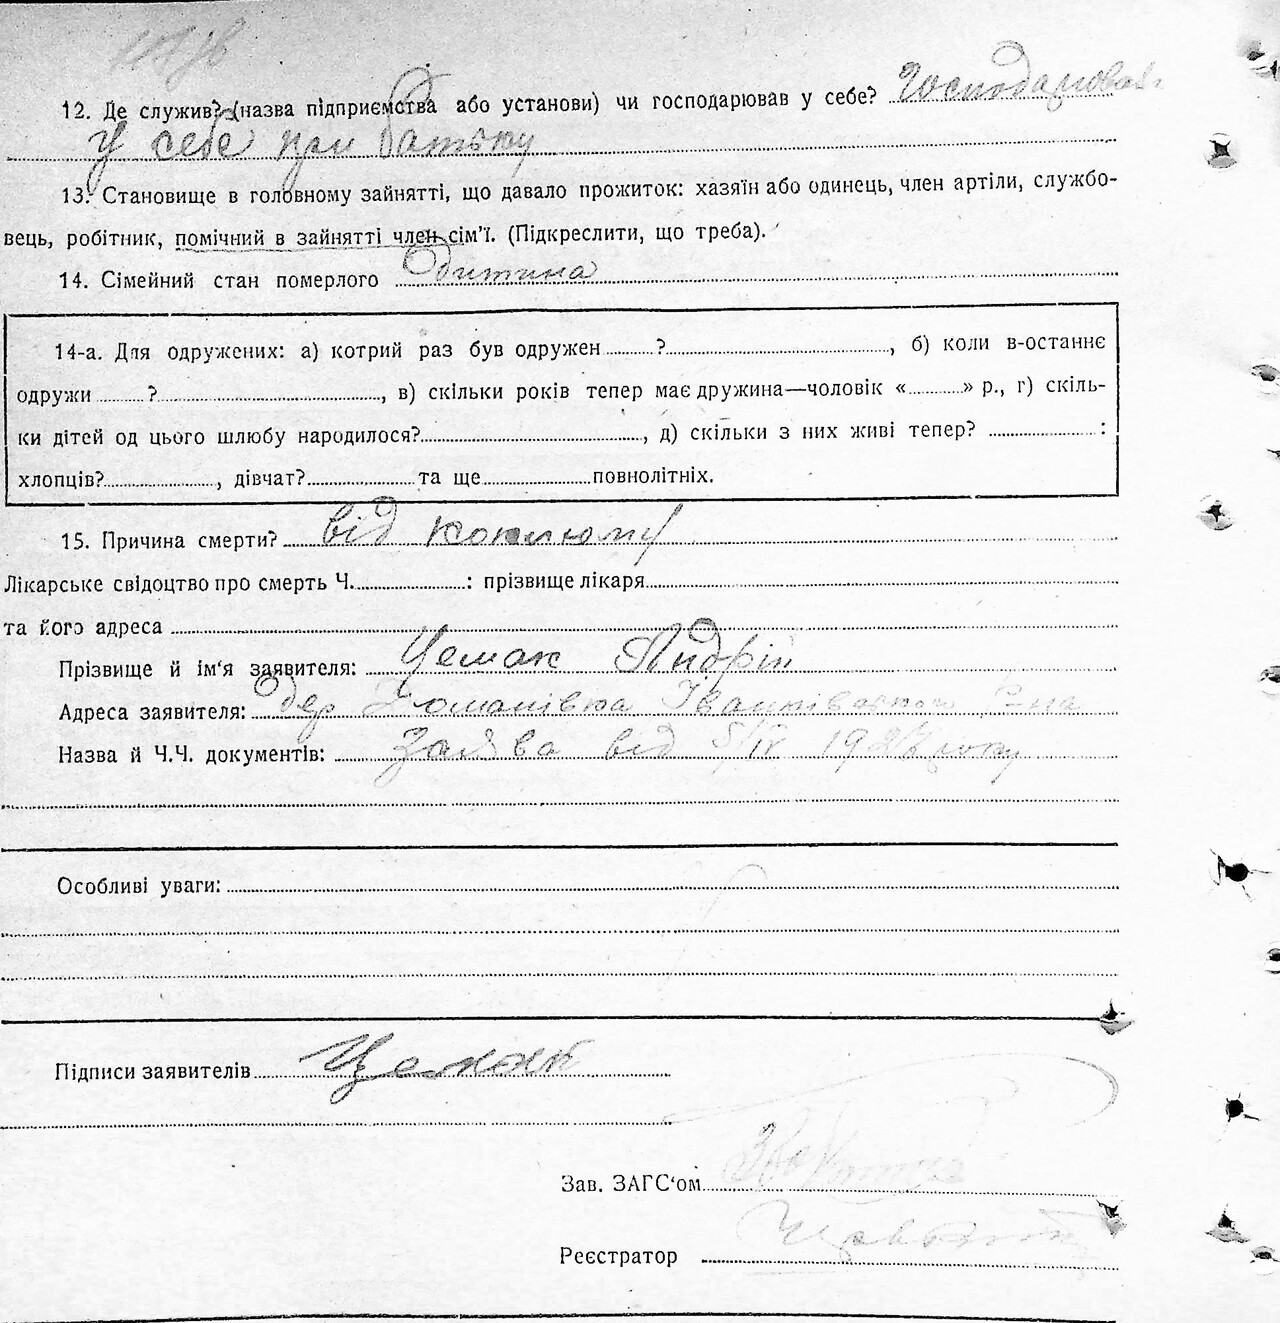 12. Де служив? (назва підприємства або установи) чи господарював у себе? Господарював
у себе при батьку
13. Становище в головному зайнятті, що давало прожиток: хазяїн або одинець, член артіли, службо-
вець, робітник, помічний в зайнятті член сім'ї. (Підкреслити, що треба).
14. Сімейний стан померлого Дитина
14-а. Для одружених: а) котрий раз був одружен ......?......, б) коли в-останнє
одружи ......?......, в) скільки років тепер має дружина—чоловік «......» р., г) скіль-
ки дітей од цього шлюбу народилося?......, д) скільки з них живі тепер? ......:
хлопців?......, дівчат?...... та ще...... повнолітніх.
15. Причина смерти? від коклюшу
Лікарське свідоцтво про смерть Ч. ......: прізвище лікаря......
та його адреса ......
Прізвище й ім'я заявителя: Цемах Андрій
Адреса заявителя: дер Доманівка Іванківського Р-на
Назва й Ч.Ч. документів: Заява від 5/IV 1927 року
Особливі уваги:
Підписи заявителів
Зав. ЗАГС'ом
Реєстратор